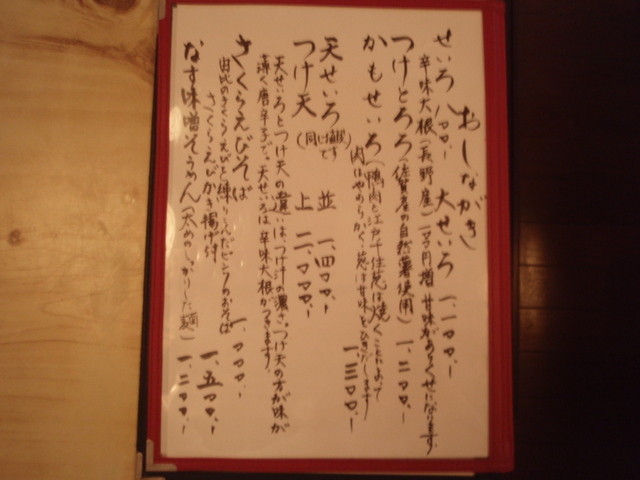 おしながき
せいろ 八〇〇.- 大せいろ 一、一〇〇.-
辛味大根(長野産)一〇〇円増 甘味があるくせになります。
つけとろろ(佐賀産の自然薯使用)一、二〇〇.-
かもせいろ(鴨肉と江戸千住葱は焼くことによって
肉はやわらかく、葱は甘味をひきだします)
一、三〇〇.-
天せいろ 並 一、四〇〇.-
つけ天(同じ値段です) 上 二、〇〇〇.-
天せいろとつけ天の違いは、つけ汁の濃さ。つけ天の方が味が
濃く唐辛子で。天せいろは辛味大根がつきます。
さくらえびそば 一、〇〇〇.-
由比のさくらえびを練りこんだピンクのおそば
さくらえびかき揚げ付 一、五〇〇.-
なす味噌そうめん(太めのしっかりした麺) 一、二〇〇.-